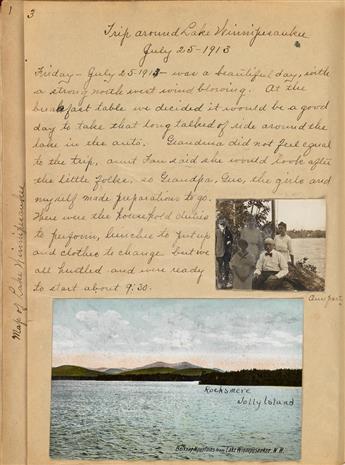 1
3
Trip around Lake Winnipesaukee
July 25-1913
Friday - July 25-1913 - was a beautiful day, with
a strong north west wind blowing. At the
breakfast table we decided it would be a good
day to take that long talked of ride around the
lake in the auto. Grandma did not feel equal
to the trip, aunt Fan said she would look after
the little folks, so Grandpa, Gus, the girls and
myself made preparations to go.
There were the household duties
to perform, lunches to put up
and clothes to change but we
all hustled and were ready
to start about 9:30.
Map of Lake Winnipesaukee
Our party
Rocksmere
Jolly Island
Belknap Mountains from Lake Winnipesaukee, N. H.